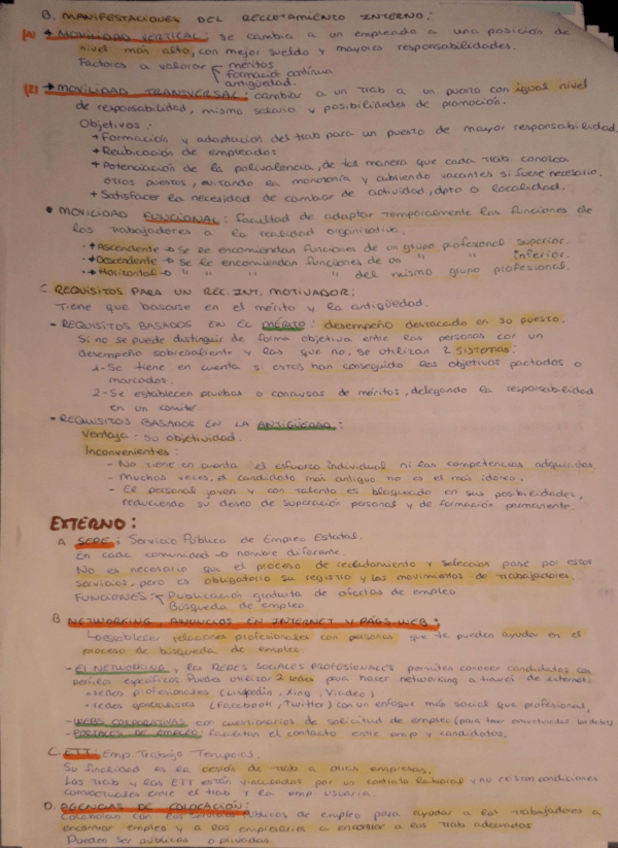 B. MANIFESTACIONES DEL RECLUTAMIENTO INTERNO:
(1) → MOVILIDAD VERTICAL: se cambia a un empleado a una posición de
nivel más alto, con mejor sueldo y mayores responsabilidades.
Factores a valorar méritos
formación continua
antigüedad.
(2) → MOVILIDAD TRANSVERSAL: cambiar a un trab a un puesto con igual nivel
de responsabilidad, mismo salario y posibilidades de promoción.
Objetivos:
→ Formación y adaptación del trab para un puesto de mayor responsabilidad.
→ Reubicación de empleados
→ Potenciación de la polivalencia, de tal manera que cada trab. conozca
otros puestos, evitando la monotonía y cubriendo vacantes si fuese necesario.
→ Satisfacer la necesidad de cambiar de actividad, dpto o localidad.
• MOVILIDAD FUNCIONAL: facultad de adaptar temporalmente las funciones de
los trabajadores a la realidad organizativa.
→ Ascendente → Se le encomiendan funciones de un grupo profesional superior.
→ Descendente → Se le encomiendan funciones de un " " inferior.
→ Horizontal → " " " " del mismo grupo profesional.
C. REQUISITOS PARA UN REC. INT. MOTIVADOR:
Tiene que basarse en el mérito y la antigüedad.
- REQUISITOS BASADOS EN EL MÉRITO: desempeño destacado en su puesto.
Si no se puede distinguir de forma objetiva entre las personas con un
desempeño sobresaliente y las que no, se utilizan 2 sistemas:
1- Se tiene en cuenta si estos han conseguido los objetivos pactados o
marcados.
2- Se establecen pruebas o concursos de méritos, delegando la responsabilidad
en un comité
- REQUISITOS BASADOS EN LA ANTIGÜEDAD:
Ventaja: su objetividad.
Inconvenientes:
- No tiene en cuenta el esfuerzo individual ni las competencias adquiridas.
- Muchas veces, el candidato más antiguo no es el más idóneo.
- El personal joven y con talento es bloqueado en sus posibilidades,
reduciendo su deseo de superación personal y de formación permanente.
EXTERNO:
A SEPE: Servicio Público de Empleo Estatal.
En cada comunidad → nombre diferente.
No es necesario que el proceso de reclutamiento y selección pase por estos
servicios, pero es obligatorio su registro y los movimientos de trabajadores.
FUNCIONES: Publicación gratuita de ofertas de empleo
Búsqueda de empleo
B NETWORKING, ANUNCIOS EN INTERNET Y PÁGS WEB:
establecer relaciones profesionales con personas que te pueden ayudar en el
proceso de búsqueda de empleo.
- El NETWORKING y las REDES SOCIALES PROFESIONALES permiten conocer candidatos con
perfiles específicos. Puedes utilizar 2 redes para hacer networking a través de internet:
→ redes profesionales (Linkedin, Xing, Viadeo)
→ redes generalistas (Facebook, Twitter) con un enfoque más social que profesional.
- WEBS CORPORATIVAS con cuestionarios de solicitud de empleo (para
- PORTALES DE EMPLEO: facilitan el contacto entre emp y candidatos.
C. ETT: Emp. Trabajo Temporal.
Su finalidad es la cesión de trab a otras empresas.
Los trab y las ETT están vinculados por un contrato laboral y no existen condiciones
contractuales entre el trab y la emp usuaria.
D. AGENCIAS DE COLOCACIÓN:
Colaboran con los servicios públicos de empleo para ayudar a los trabajadores a
encontrar empleo y a los empresarios a encontrar a los trab adecuados
Pueden ser públicas o privadas.